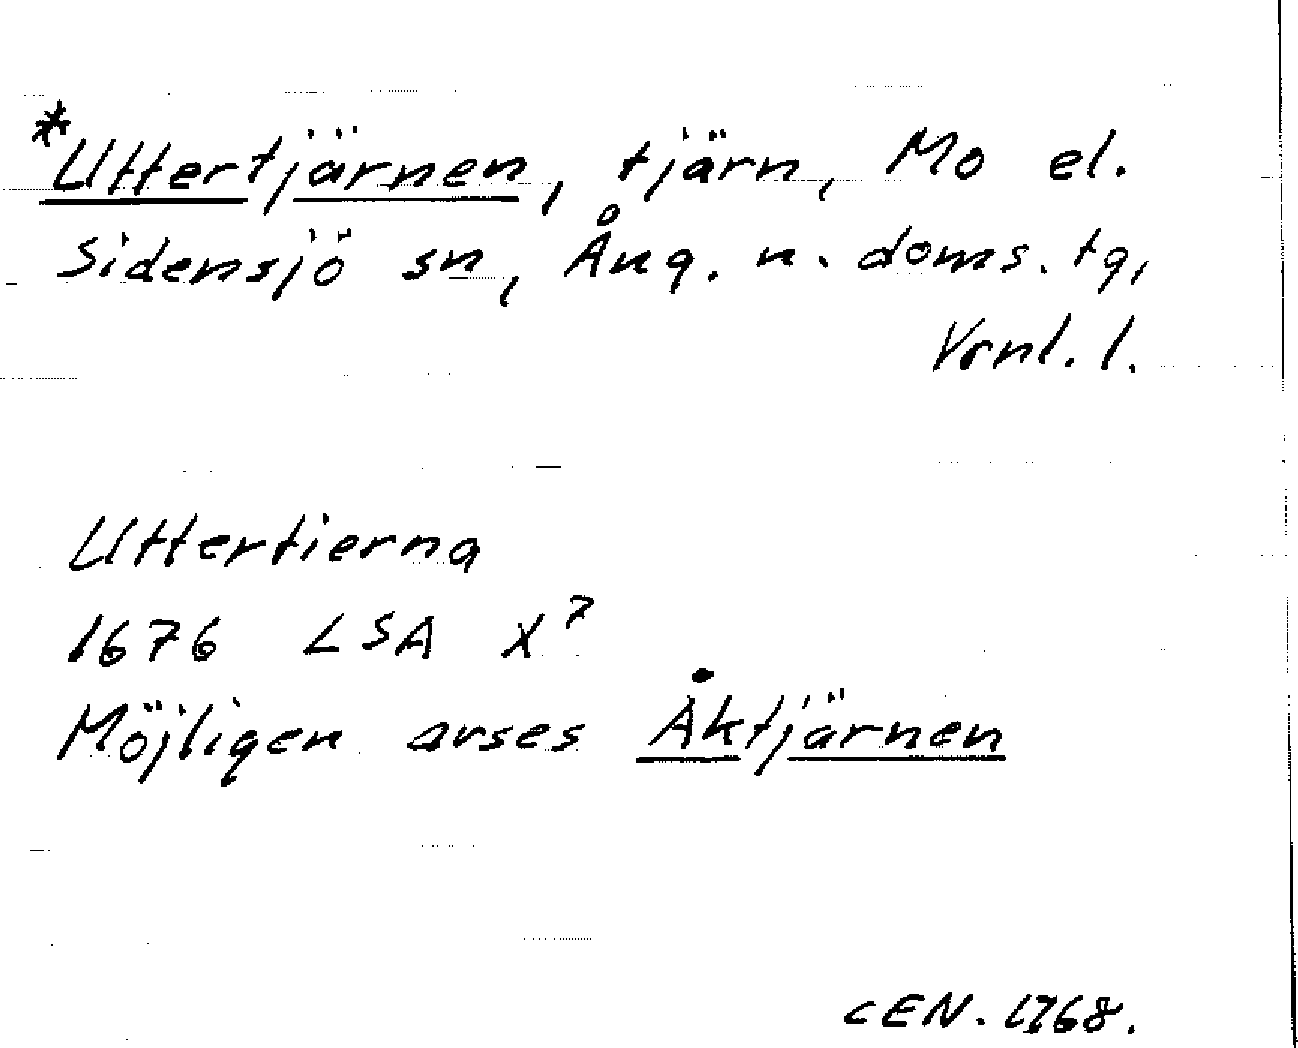 *Uttertjärnen, tjärn, Mo el.
Sidensjö sn, Ång. n. doms. tg,
Vrnl. l.
Uttertierna
1676 LSA X7
Möjligen avses Åktjärnen
CEN. 1968.